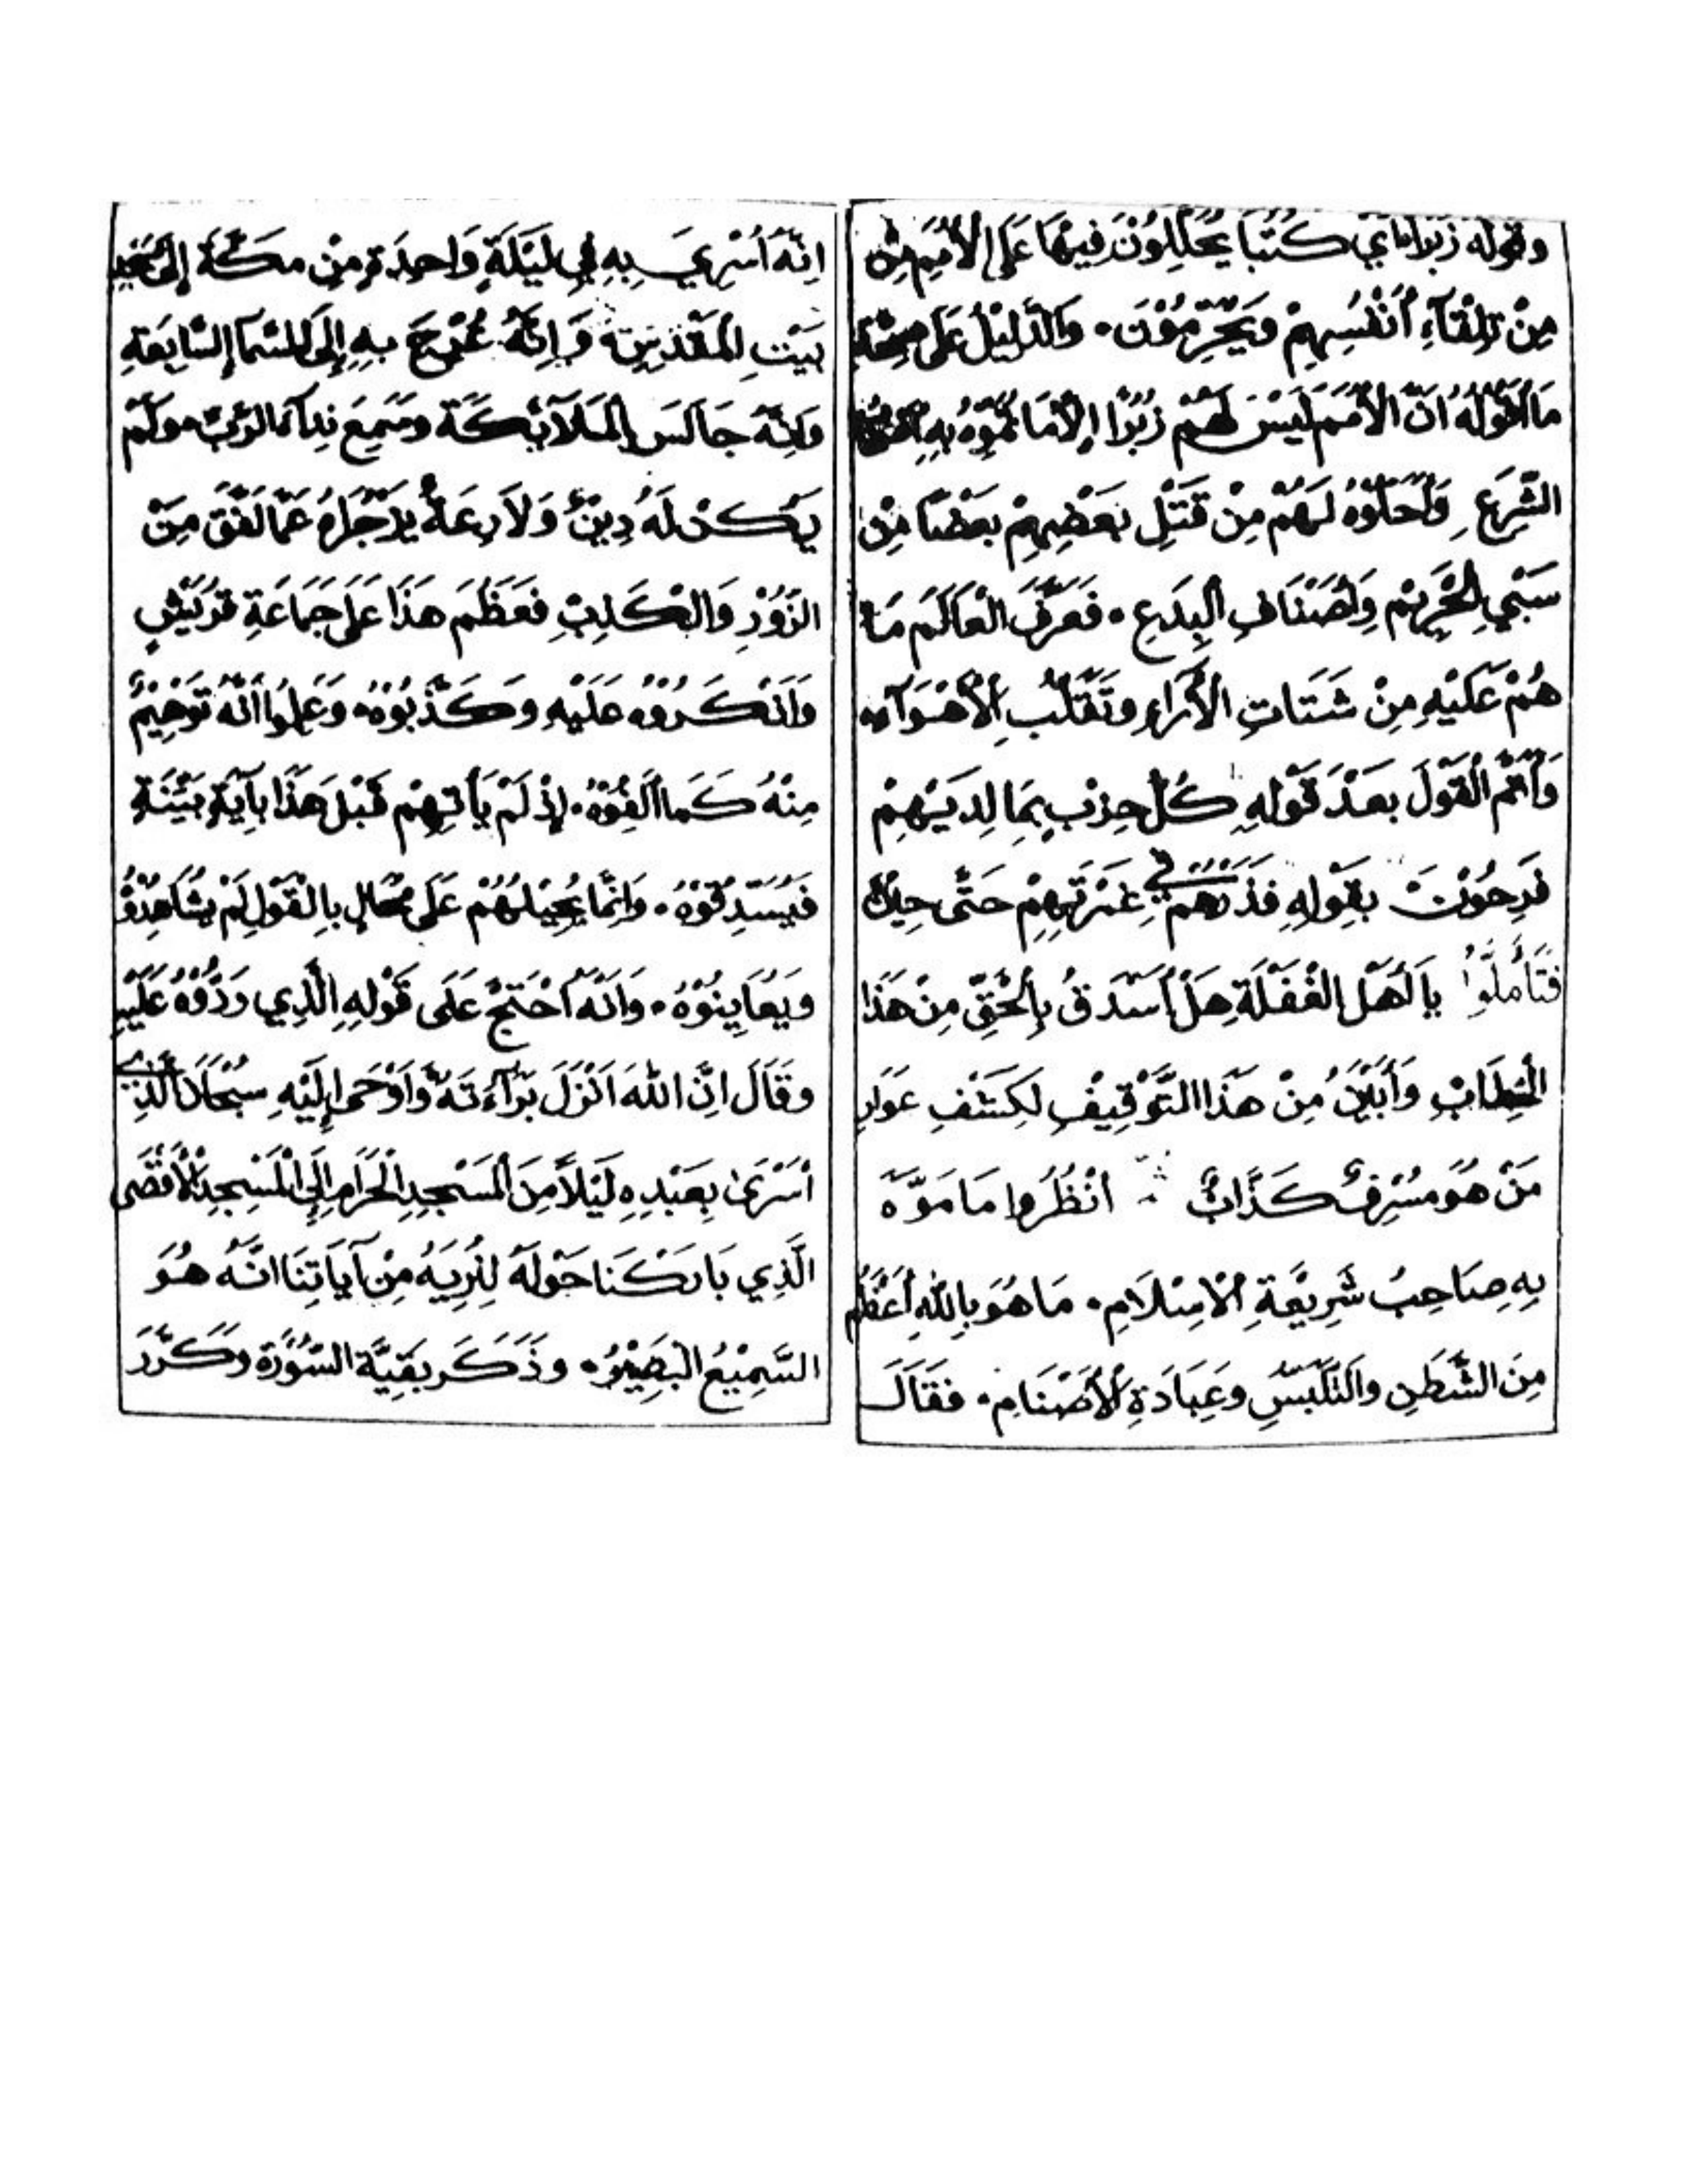 وقوله زبرا اي كُتُبًا يُحَلِّلُوْنَ فِيْهَا عَلَى الأُمَمِ مِنْ
مِنْ تِلْقَآءِ أَنْفُسِهِمْ وَيُحَرِّمُوْنَ۰ وَالدَّلِيْلُ عَلَى
مَا أَقُوْلُهُ انَّ الأُمَمَ لَيْسَ لَهُمْ زُبُرًا إِلاَّ مَا مُوِّهُ بِهِ
الشَّرِعَ وَاَحَلُّوْهُ لَهُمْ مِنْ قَتْلِ بَعْضِهِمْ بَعْضًا مِنْ
سَبْيِ الحَرِيْمِ وَاَصْنَافِ البِدَعِ۰ فَعَرَّفَ الْعَالَمَ مَا
هُمْ عَلَيْهِ مِنْ شَتَاتِ الأَرَاءِ وَتَقَلُّبِ الأَهْوَآءِ۰
وَأَتَمَّ الْقَوْلَ بَعْدَ قَوْلِهِ كُلُّ حِزْبٍ بِمَا لَدَيْهِمْ
فَرِحُوْنَ بِقَوْلِهِ فَذَرْهُمْ فِي غَمْرَتِهِمْ حَتَّى حِيْنٍ
فَتَأَمَّلُوْا يا اَهْلَ الْغَفْلَةِ هَلْ أَسْدَقُ بِالْحَقِّ مِنْ هَذَا
الْخِطَابِ وَأَبْيَنُ مِنْ هَذَا التَّوْقِيْفِ لِكَشْفِ عَوَارِ
مَنْ هُوَ مُسْرِفٌ كَذَّابٌ ۰ انْظُرُوا مَا مَوَّهَ
بِهِ صَاحِبُ شَرِيْعَةِ الْاِسْلَامِ۰ مَا هُوَ بِاللهِ أَعْظَمُ
مِنَ الشَّطَنِ وَالتَّلَبُّسِ وَعِبَادَةِ الأَصْنَامِ۰ فَقَالَ
اِنَّهُ أُسْرِيَ بِهِ فِي لَيْلَةٍ وَاحِدَةٍ مِنْ مَكَّةَ إِلَى
بَيْتِ الْمَقْدِسِ۰ وَإِنَّهُ عُرِجَ بِهِ إِلَى السَّمَآ السَّابِعَةِ
وَإِنَّهُ جَالَسَ الْمَلَآئِكَةَ وَسَمِعَ نِدَآءَ الرَّبِّ۰ وَلَمْ
يَكُنْ لَهُ دِيْنٌ وَلَا رِعَةٌ يَزْجُرَاهُ عَمَّا لَفَّقَ مِنَ
الزُّوْرِ وَالْكَذِبِ فَعَظُمَ هَذَا عَلَى جَمَاعَةِ قُرَيْشٍ
وَاَنْكَرُوْهُ عَلَيْهِ وَكَذَّبُوْهُ۰ وَعَلِمُوا اَنَّهُ تَوَهُّمٌ
مِنْهُ كَمَا أَلِفُوْهُ۰ إِذْ لَمْ يَأْتِهِمْ قَبْلَ هَذَا بِآيَةٍ بَيِّنَةٍ
فَيُسَدِّقُوْهُ۰ وَاِنَّمَا يُحِيْلُهُمْ عَلَى مُحَالٍ بِالْقَوْلِ لَمْ يُشَاهِدُوْهُ
وَيُعَايِنُوْهُ۰ وَاَنَّهُ اَحْتَجَّ عَلَى قَوْلِهِ الَّذِي رَدُّوْهُ عَلَيْهِ
وَقَالَ اِنَّ اللهَ اَنْزَلَ بَرَآءَتَهُ وَاَوْحَى إِلَيْهِ سُبْحَانَ الَّذِي
أَسْرَىٰ بِعَبْدِهِ لَيْلًا مِنَ الْمَسْجِدِ الْحَرَامِ إِلَى الْمَسْجِدِ الْأَقْصَى
الَّذِي بَارَكْنَا حَوْلَهُ لِنُرِيَهُ مِنْ آيَاتِنَا انَّهُ هُوَ
السَّمِيْعُ الْبَصِيْرُ۰ وَذَكَرَ بَقِيَّةَ السُّوْرَةِ وَكَرَّرَ